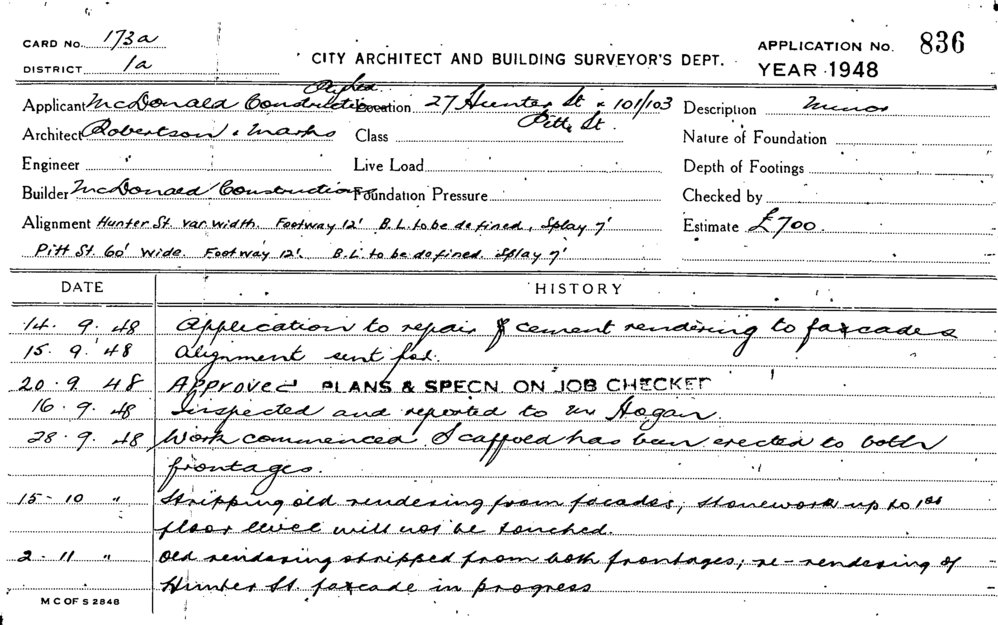 CARD No. 173a
DISTRICT 1a
CITY ARCHITECT AND BUILDING SURVEYOR'S DEPT.
APPLICATION No. 836
YEAR 1948
Applicant McDonald Constructions Location 27 Hunter St & 101/103 Pitt St. Description Minor
Architect Robertson & Marks Class Nature of Foundation
Engineer Live Load Depth of Footings
Builder McDonald Constructions Foundation Pressure Checked by
Alignment Hunter St. var. width. Footway 12' B.L. to be defined, Splay 7' Estimate £700
Pitt St. 60' wide. Footway 12'. B.L. to be defined. Splay 7'
DATE HISTORY
14. 9. 48 Application to repair cement rendering to facades
15. 9. 48 Alignment sent for.
20. 9. 48 Approved PLANS & SPECN. ON JOB CHECKED
16. 9. 48 Inspected and reported to Mr Hogan.
28. 9. 48 Work commenced. Scaffold has been erected to both
frontages.
15 - 10 " Stripping old rendering from facades, stonework up to 1st
floor level will not be touched.
2 - 11 " Old rendering stripped from both frontages; re-rendering of
Hunter St. facade in progress
M C OF S 2848